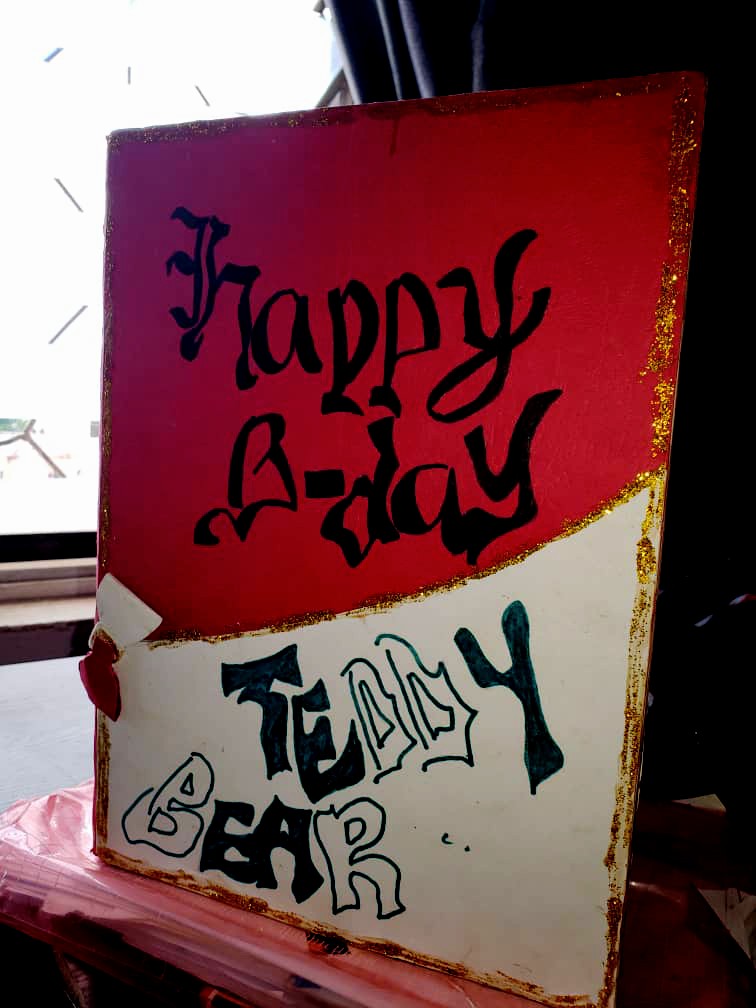 Happy
B-day
TEDDY
BEAR